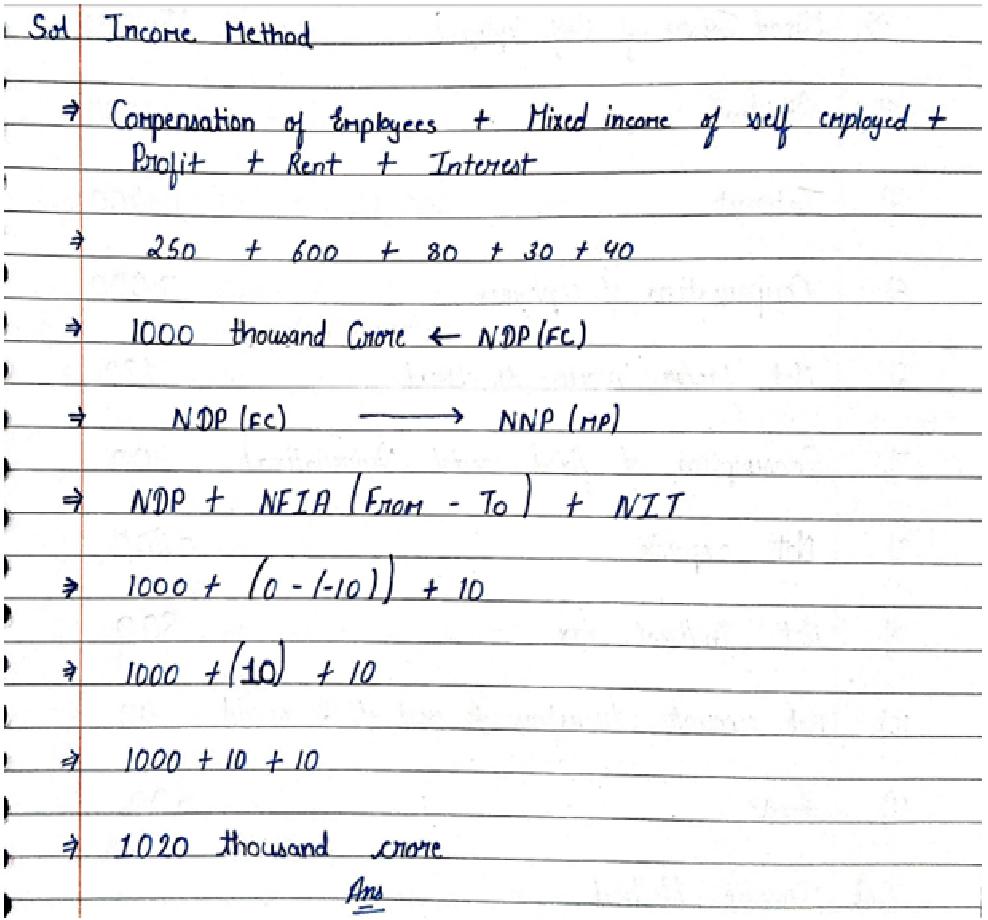 Sol Income Method
⇒ Compensation of Employees + Mixed income of self employed +
Profit + Rent + Interest
⇒ 250 + 600 + 80 + 30 + 40
⇒ 1000 thousand Crore ← NDP (FC)
⇒ NDP (FC) ⟶ NNP (MP)
⇒ NDP + NFIA (From - To) + NIT
⇒ 1000 + (0 - (-10)) + 10
⇒ 1000 + (10) + 10
⇒ 1000 + 10 + 10
⇒ 1020 thousand crore
Ans